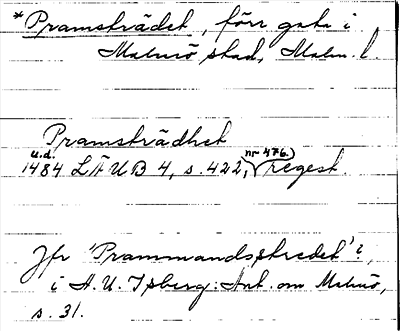 *Pramsträdet, förr gata i
Malmö stad, Malm. l.
Pramsträdhet
u.d.
1484 LÄUB 4, s. 422, (nr 476.) regest.
Jfr 'Prammandsstredet' i,
i H. U. Isberg: Ant. om Malmö,
s. 31.